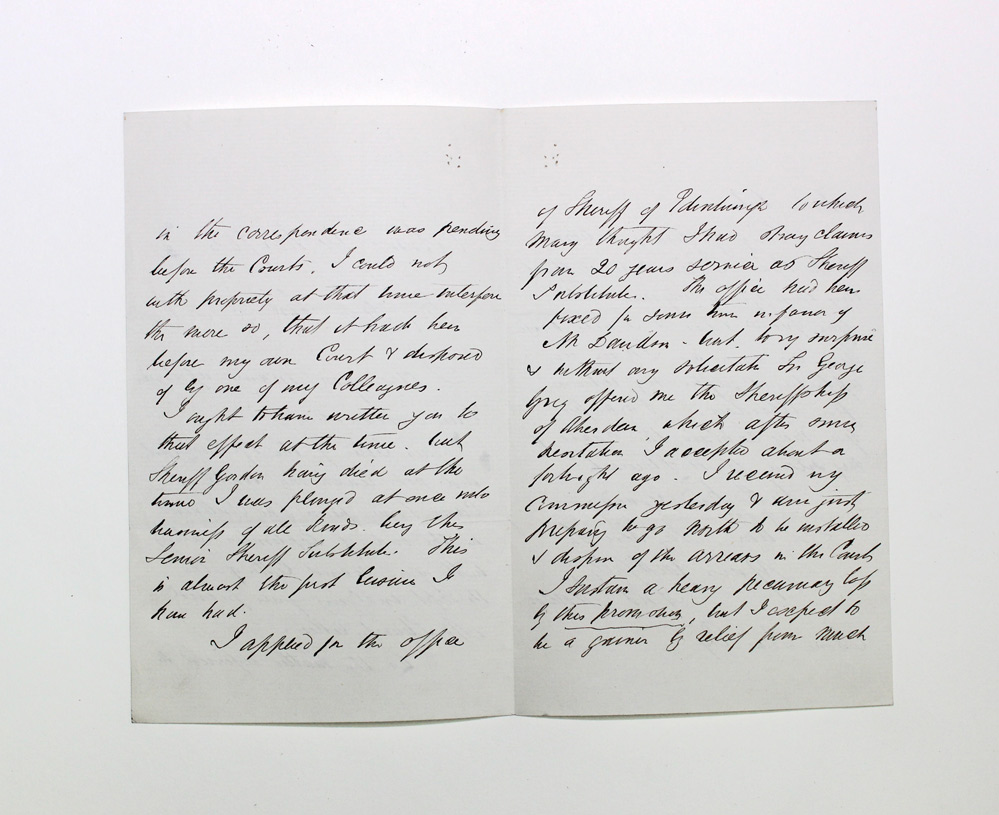 in the correspondence was pending
before the Courts, I could not
with propriety at that time interfere
the more so, that it had been
before my own Court & disposed
of by one of my Colleagues.
I ought to have written you to
that effect at the time. but
Sheriff Gordon having died at the
time I was plunged at once into
business of all kinds. being the
Senior Sheriff Substitute. This
is almost the first leisure I
have had.
I applied for the office
of Sheriff of Edinburgh to which
many thought I had strong claims
from 20 years service as Sheriff
Substitute. The office had been
fixed for some time in favor of
Mr Davidson - but, to my surprise
& without any solicitation Sir George
Grey offered me the Sheriffship
of Aberdeen, which after some
hesitation I accepted about a
fortnight ago. I received my
Commission yesterday & am just
preparing to go north to be installed
& dispose of the arrears in the Courts
I sustain a heavy pecuniary loss
by this promotion, but I expect to
be a gainer by relief from much